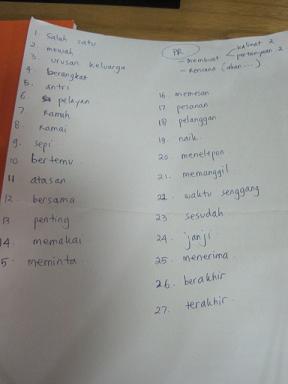 1. salah satu
2. mewah
3. urusan keluarga
4. berangkat
5. antri
6. pelayan
7. Ramah
8. Ramai
9. sepi
10 bertemu
11 atasan
12. bersama
13 penting
14. memakai
5. meminta
PR
- membuat kalimat 2
pertanyaan 2
- Rencana (akan...)
16 memesan
17 pesanan
18 pelanggan
19. naik
20. menelepon
21. memanggil
22. waktu senggang
23 sesudah
24. janji
25 menerima
26. berakhir
27. terakhir